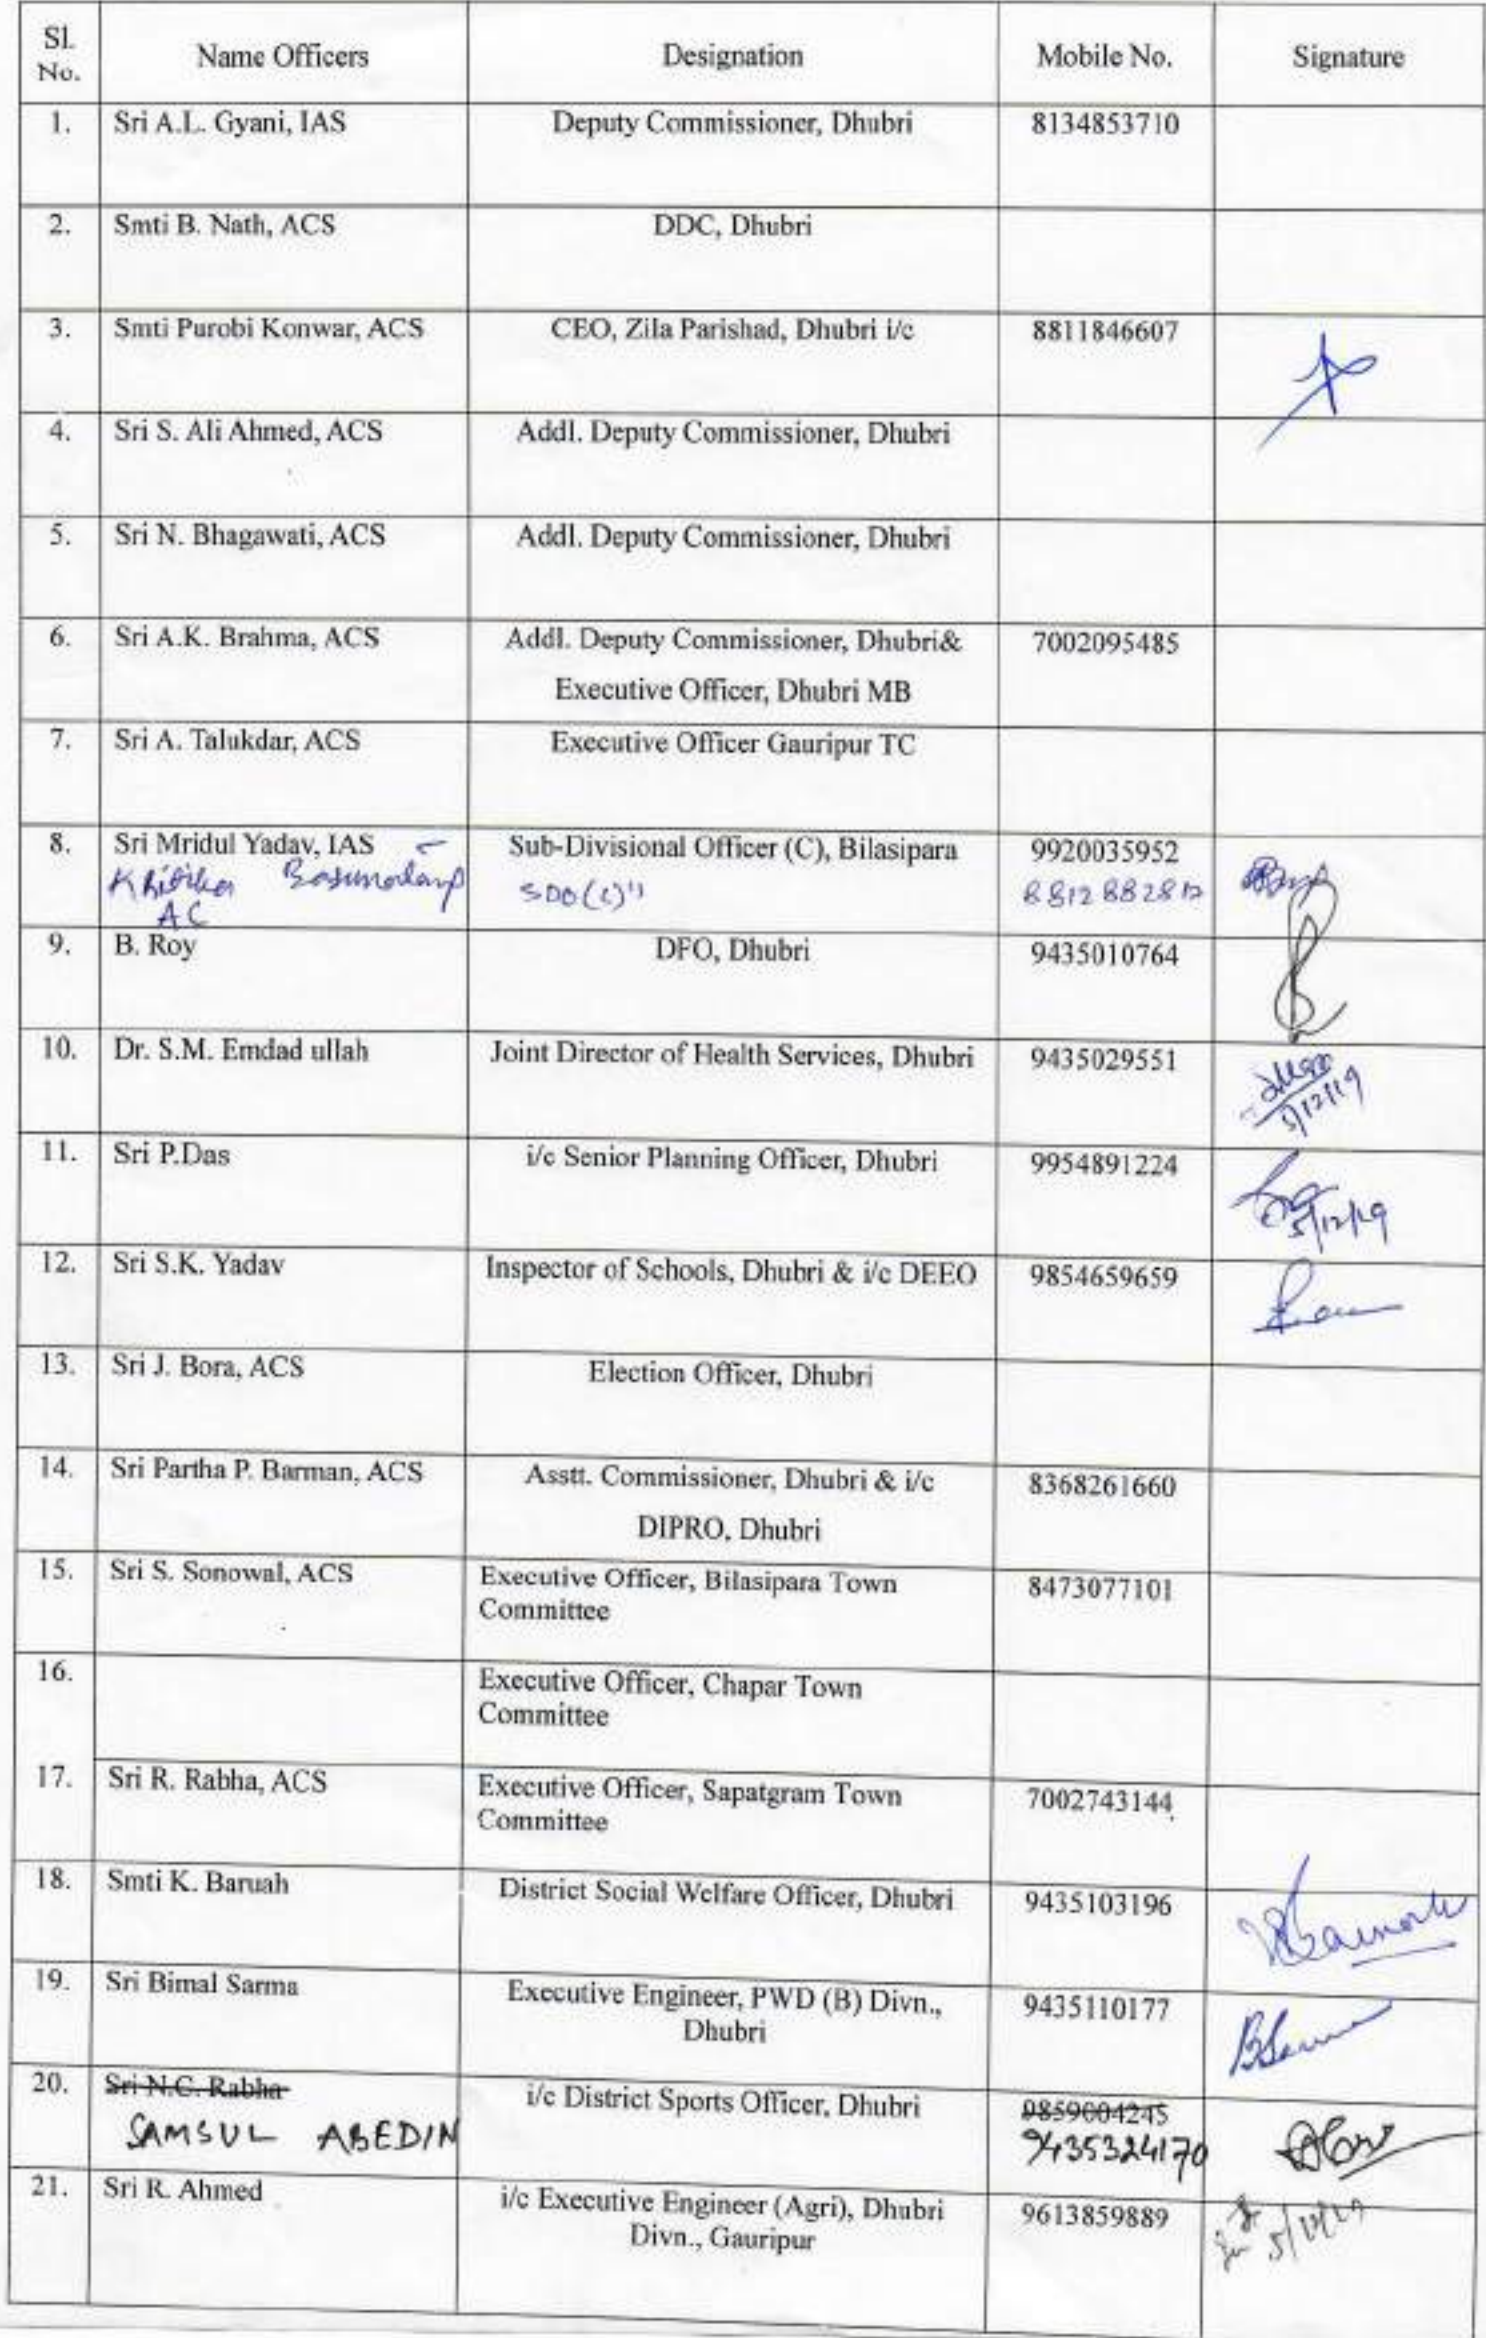 Sl. No. Name Officers Designation Mobile No. Signature
1. Sri A.L. Gyani, IAS Deputy Commissioner, Dhubri 8134853710
2. Smti B. Nath, ACS DDC, Dhubri
3. Smti Purobi Konwar, ACS CEO, Zila Parishad, Dhubri i/c 8811846607
4. Sri S. Ali Ahmed, ACS Addl. Deputy Commissioner, Dhubri
5. Sri N. Bhagawati, ACS Addl. Deputy Commissioner, Dhubri
6. Sri A.K. Brahma, ACS Addl. Deputy Commissioner, Dhubri& 7002095485
Executive Officer, Dhubri MB
7. Sri A. Talukdar, ACS Executive Officer Gauripur TC
8. Sri Mridul Yadav, IAS Sub-Divisional Officer (C), Bilasipara 9920035952
SDO(C)
AC
9. B. Roy DFO, Dhubri 9435010764
10. Dr. S.M. Emdad ullah Joint Director of Health Services, Dhubri 9435029551
5/12/19
11. Sri P.Das i/c Senior Planning Officer, Dhubri 9954891224
5/12/19
12. Sri S.K. Yadav Inspector of Schools, Dhubri & i/c DEEO 9854659659
13. Sri J. Bora, ACS Election Officer, Dhubri
14. Sri Partha P. Barman, ACS Asstt. Commissioner, Dhubri & i/c 8368261660
DIPRO, Dhubri
15. Sri S. Sonowal, ACS Executive Officer, Bilasipara Town 8473077101
Committee
16. Executive Officer, Chapar Town
Committee
17. Sri R. Rabha, ACS Executive Officer, Sapatgram Town 7002743144
Committee
18. Smti K. Baruah District Social Welfare Officer, Dhubri 9435103196
19. Sri Bimal Sarma Executive Engineer, PWD (B) Divn., 9435110177
Dhubri
20. Sri N.C. Rabha i/c District Sports Officer, Dhubri 9859004245
SAMSUL ABEDIN 9435324170
21. Sri R. Ahmed i/c Executive Engineer (Agri), Dhubri 9613859889
Divn., Gauripur
5/12/19